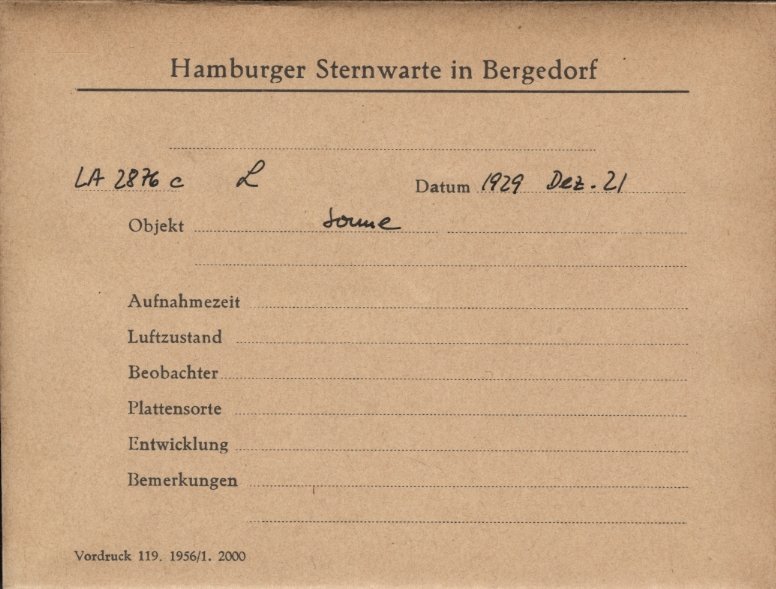 Hamburger Sternwarte in Bergedorf
LA 2876 c L Datum 1929 Dez. 21
Objekt Sonne
Aufnahmezeit
Luftzustand
Beobachter
Plattensorte
Entwicklung
Bemerkungen
Vordruck 119. 1956/1. 2000